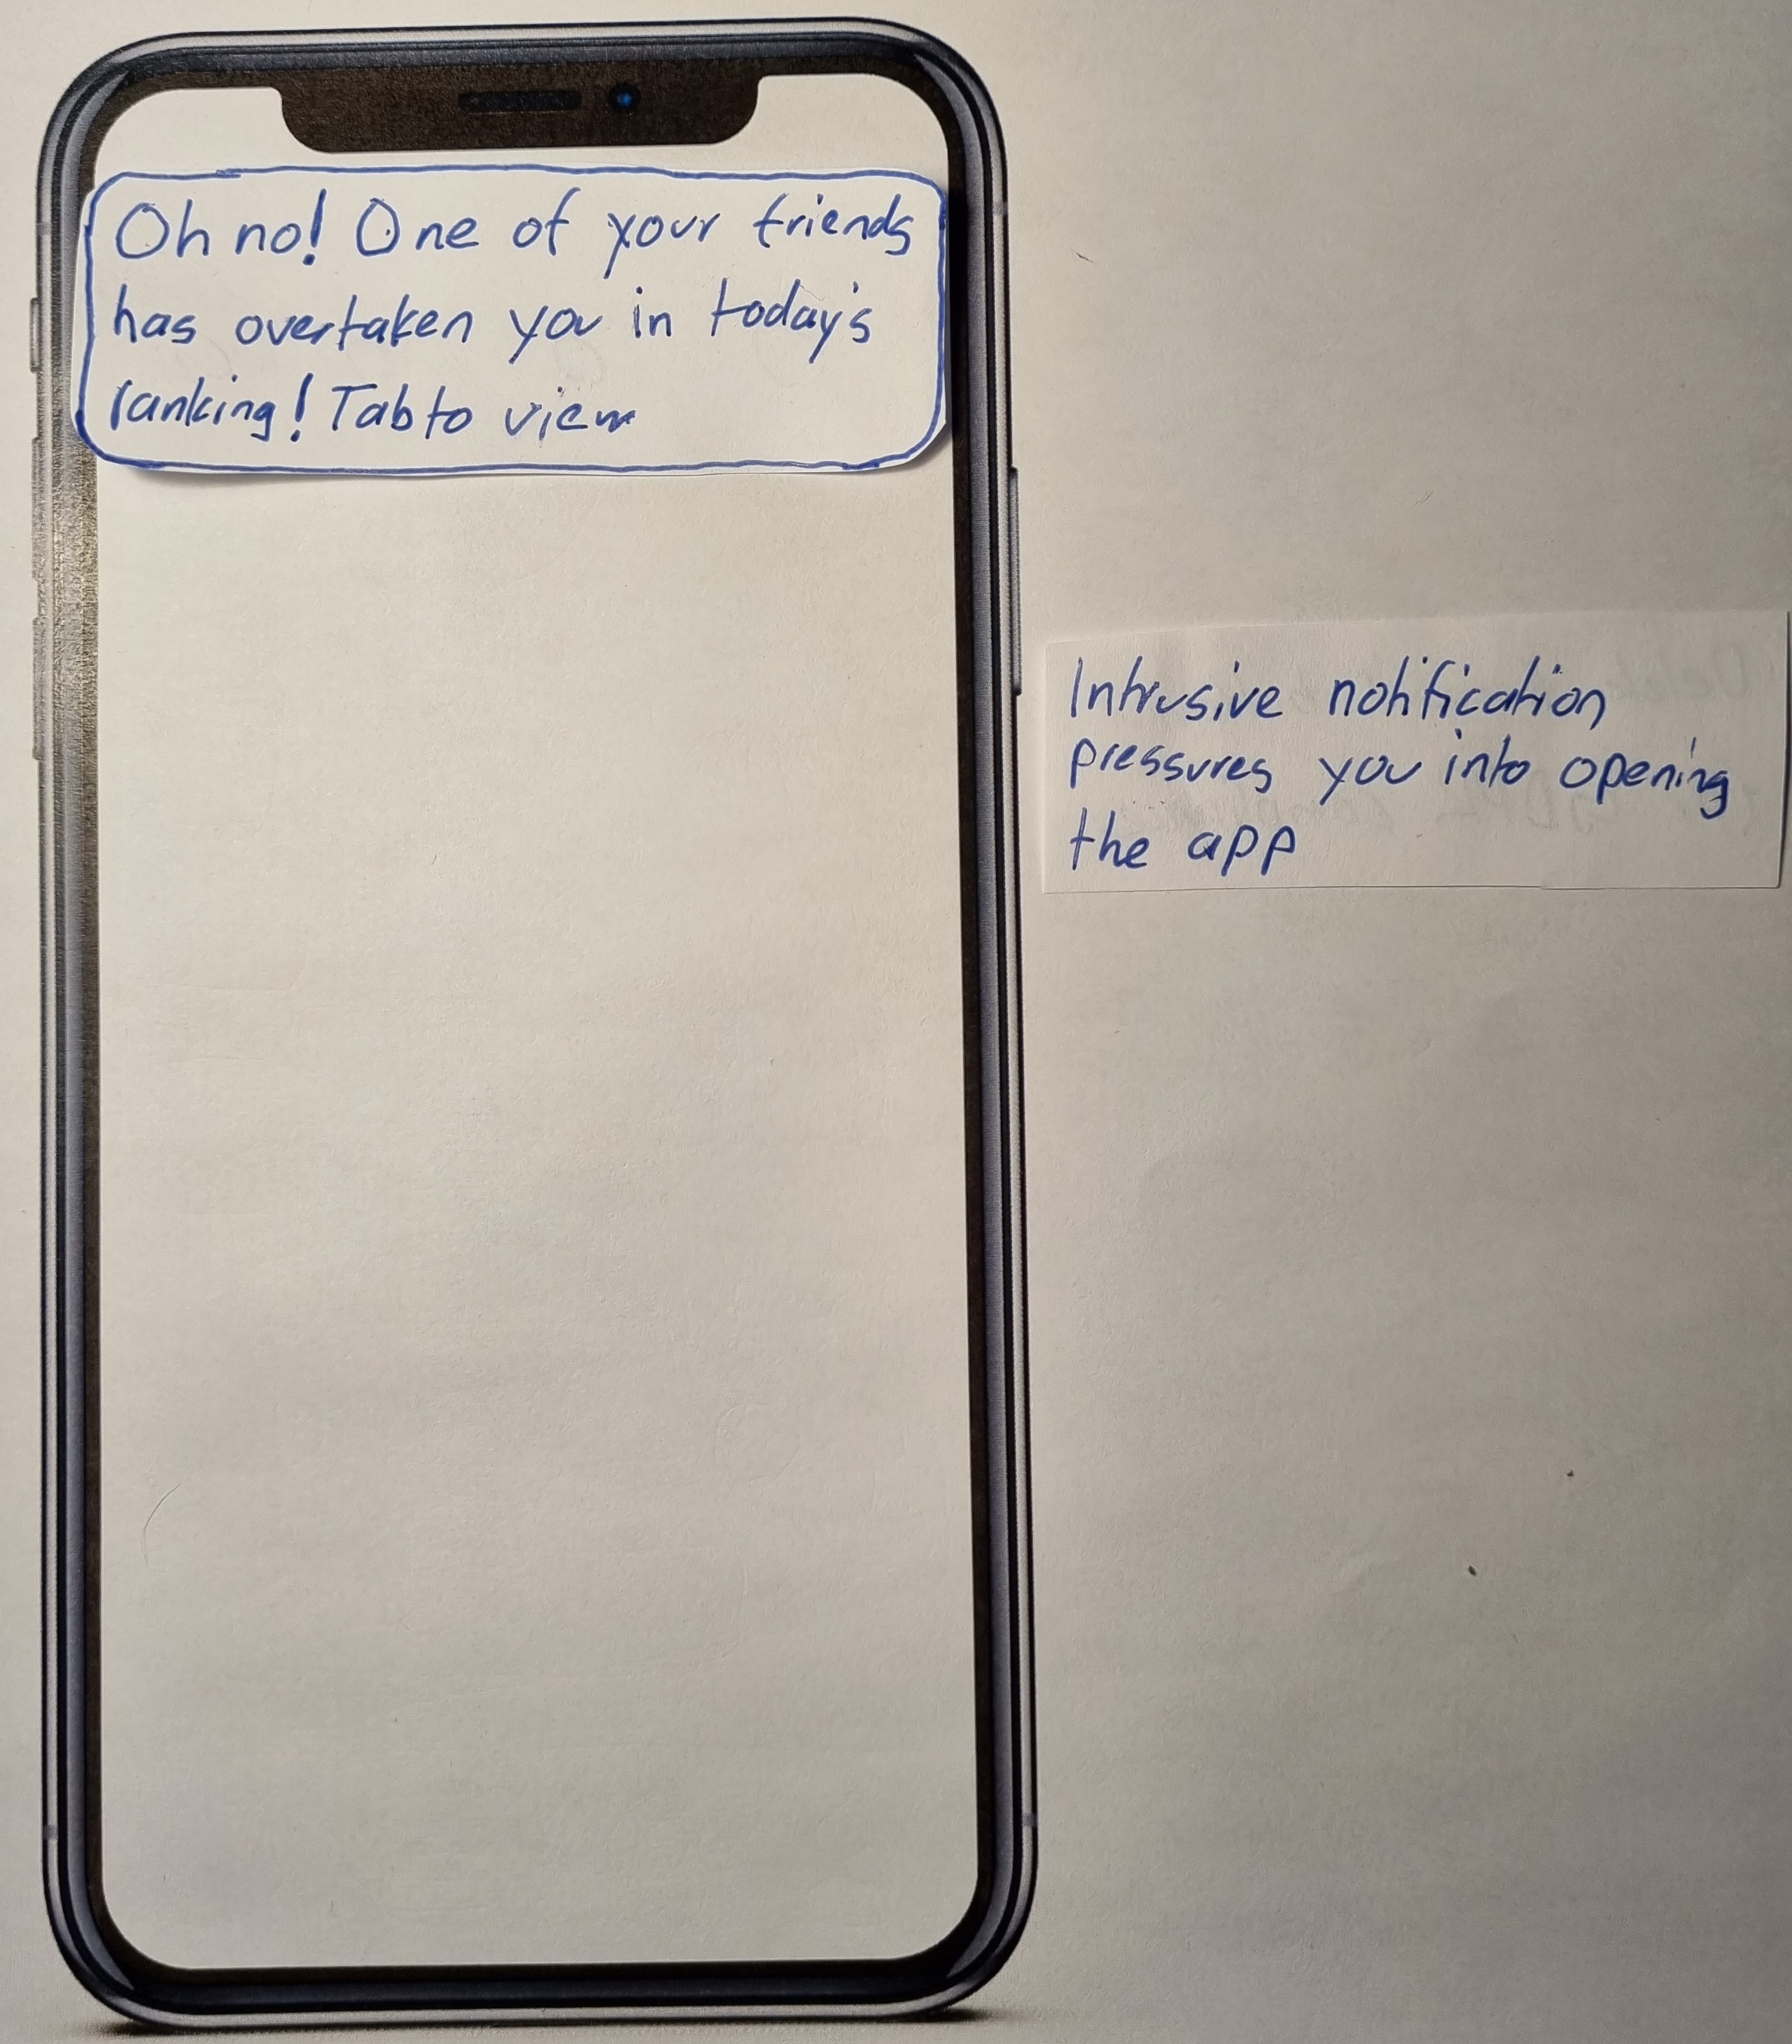 Oh no! One of your friends
has overtaken you in today's
ranking! Tab to view
Intrusive notification
pressures you into opening
the app